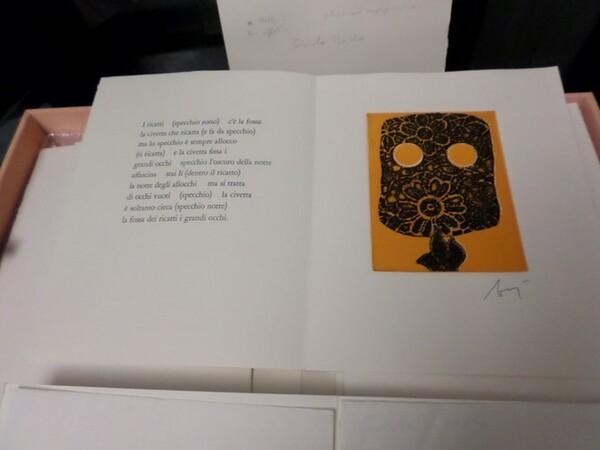 I ricatti (specchio rotto) c'è la fossa
la civetta che ricatta (e fa da specchio)
ma lo specchio è sempre allocco
(ti ricatta) e la civetta fissa i
grandi occhi specchio l'oscuro della notte
affascina stai lì (dentro il ricatto)
la notte degli allocchi ma si tratta
di occhi vuoti (specchio) la civetta
è soltanto cieca (specchio notte)
la fossa dei ricatti i grandi occhi.